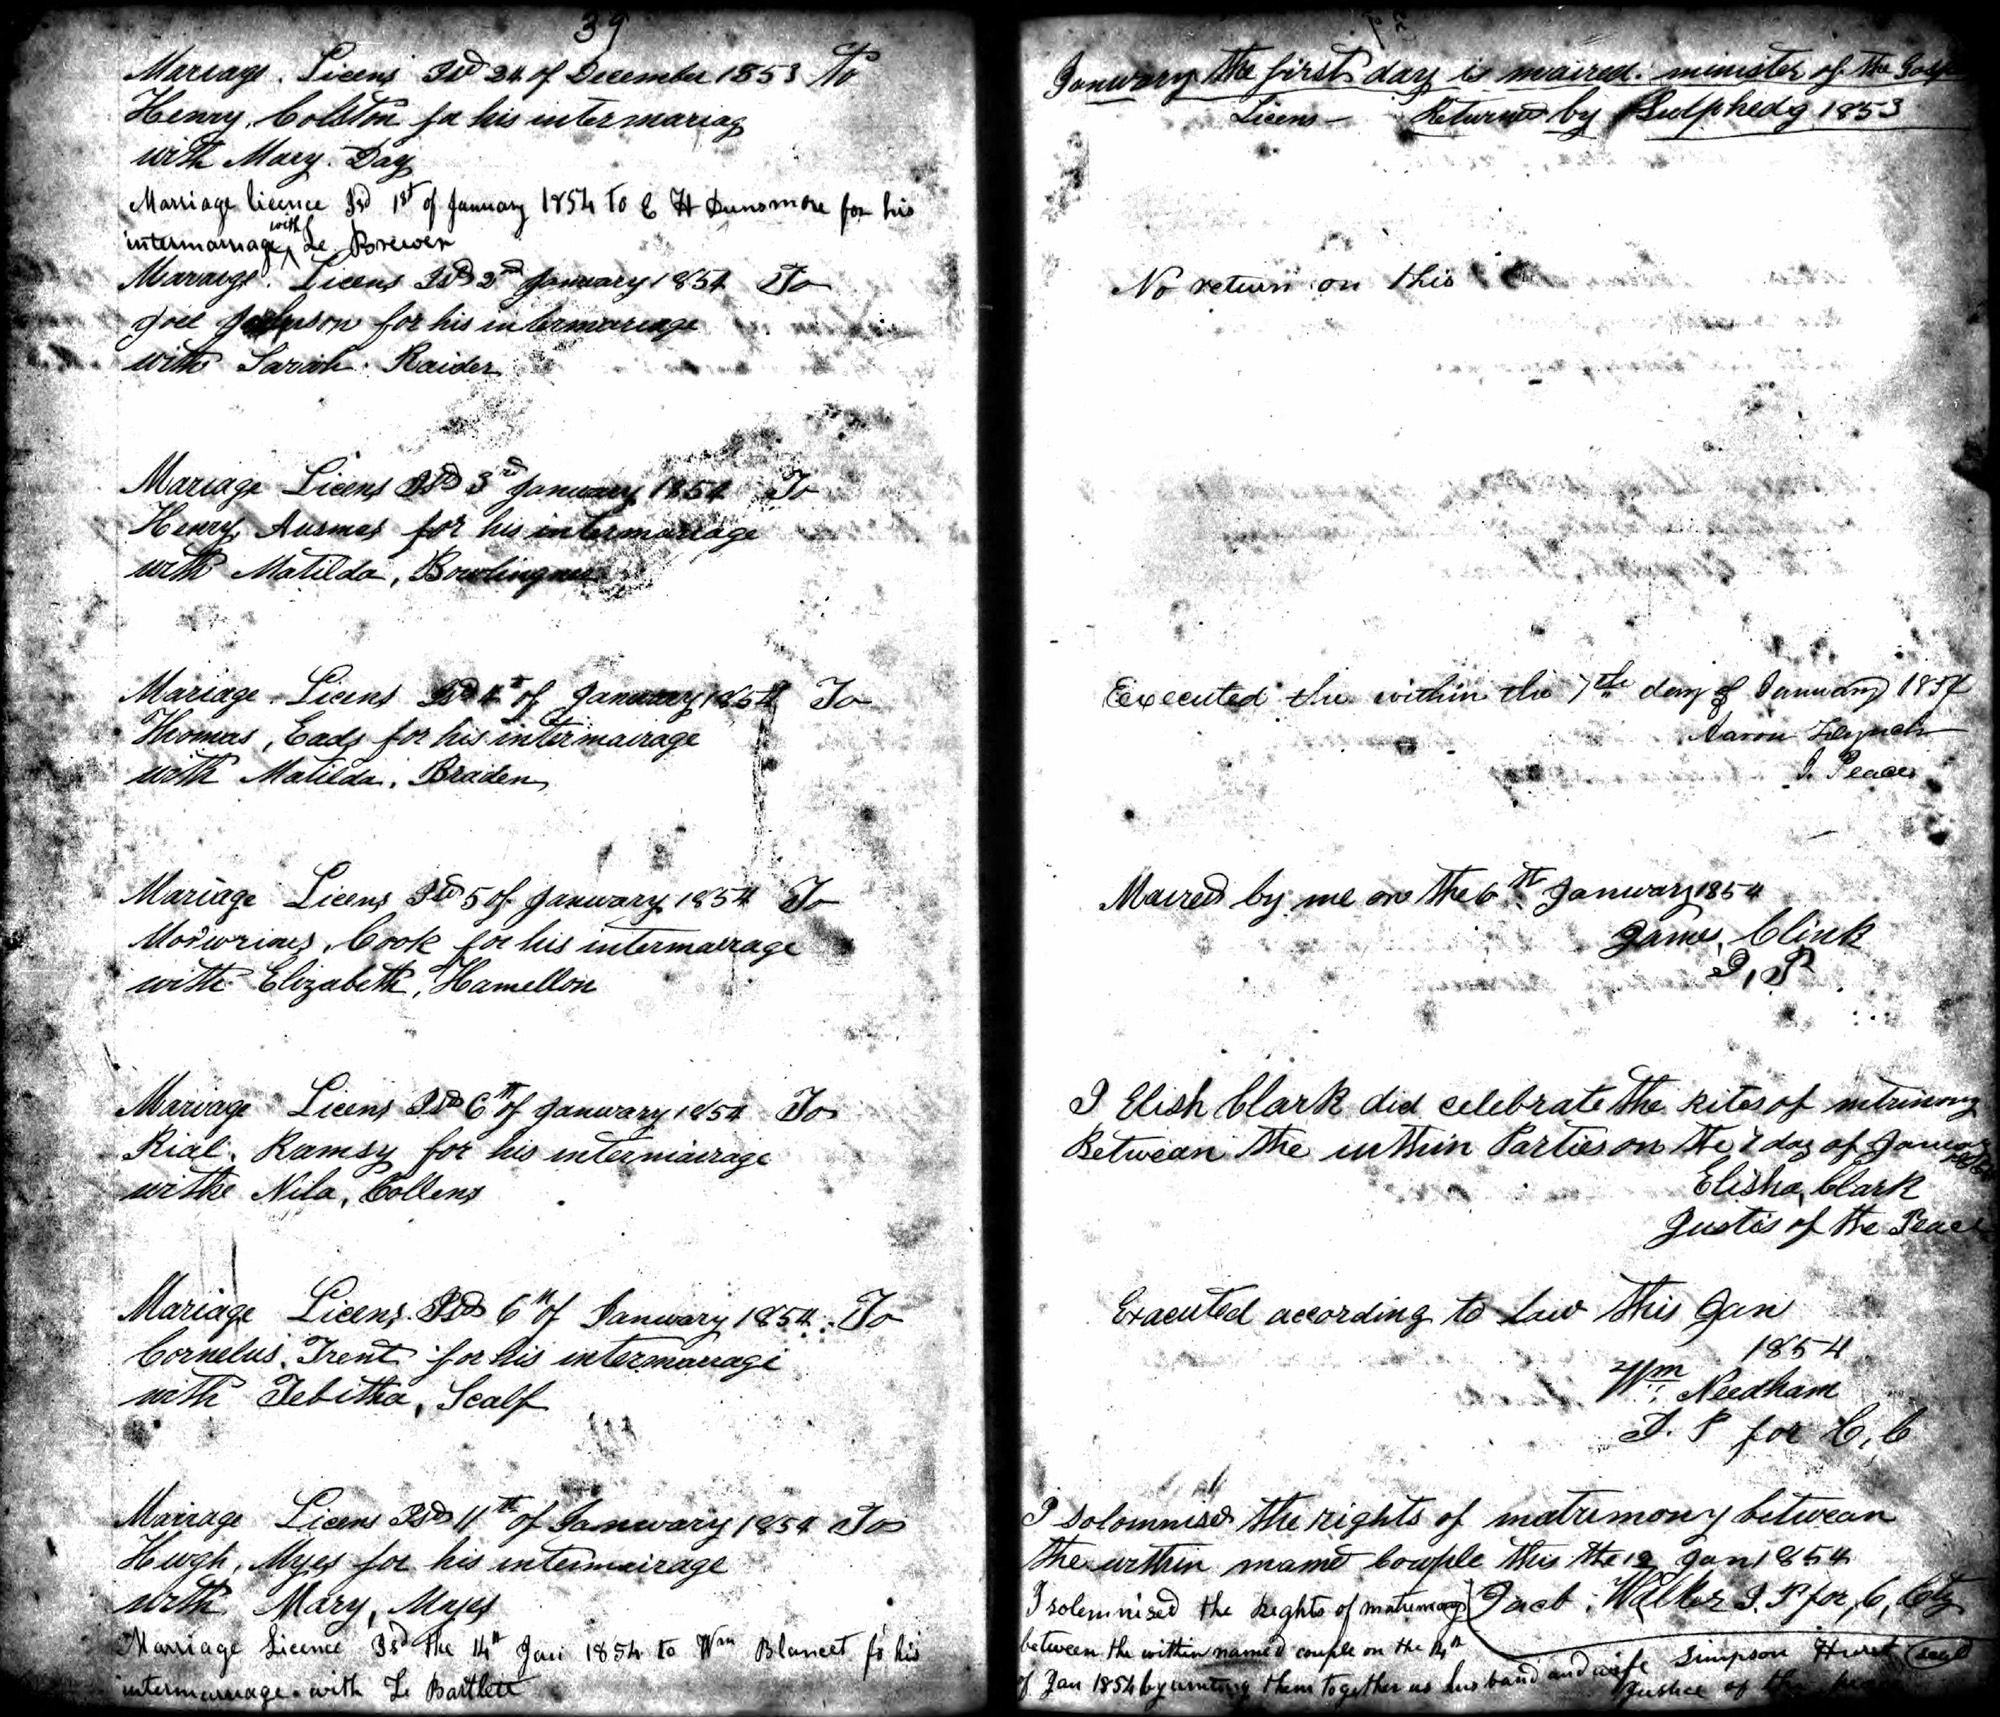 39
Mariage. Licens Isd 24 of December 1853 To
Henry, Colston for his intermariag
with Mary. Day
Marriage licence Isd 1st of January 1854 to C H Dunsmore for his
intermarriage with Le Brewer
Mariage. Licens Isd 2nd January 1854 To
Joel Johnson for his intermareage
with Sarah. Raider
Mariage Licens Isd 3rd January 1854 To
Henry, Ausmus for his intermarage
with Matilda,
Mariage. Licens Isd 4th of January 1854 To
Thomas, Eads for his intermairage
with Matilda. Braden
Mariage Licens Isd 5 of January 1854 To
Cook for his intermarrage
with Elizabeth, Hamellon
Mariage Licens Isd 6th of January 1854 To
Rial. Ramsy for his intermairage
withe Nila, Collens
Mariage Licens. Isd 6th of January 1854. To
Cornelus. Trent for his intermarragi
with Tebitha, Scalf
Mairage Licens Isd 11th of January 1854 To
Hugh, Myes for his intermairage
with Mary, Myes
Marriage Licence Isd the 14th Jan 1854 to Wm Blancet fo his
intermarriage. with Le Bartlett
January the first day is maired. minister of the
Licens - Returned by 1853
No return on this
Executed the within the 7th day of January 1854
Aaron
J. Peace
Maired by me on the 6th January 1854
James, Clink
J, P
I Elish Clark did celebrate the rites of
Betwean the within Parties on the day of
Elisha, Clark
Justis of the Peace
Exacuted according to law this Jan
1854
Wm Needham
J. P for C, C
I Solomnised the rights of matrimony betwean
the within named couple this the 12 Jan 1854
Jacb. Walker J. P for, C, Cty
I solemnised the Rights of matrimony
between the within named couple on the 14th
of Jan 1854 by uniting them together as husband and wife Simpson Hurst (seal
Justice of the peace